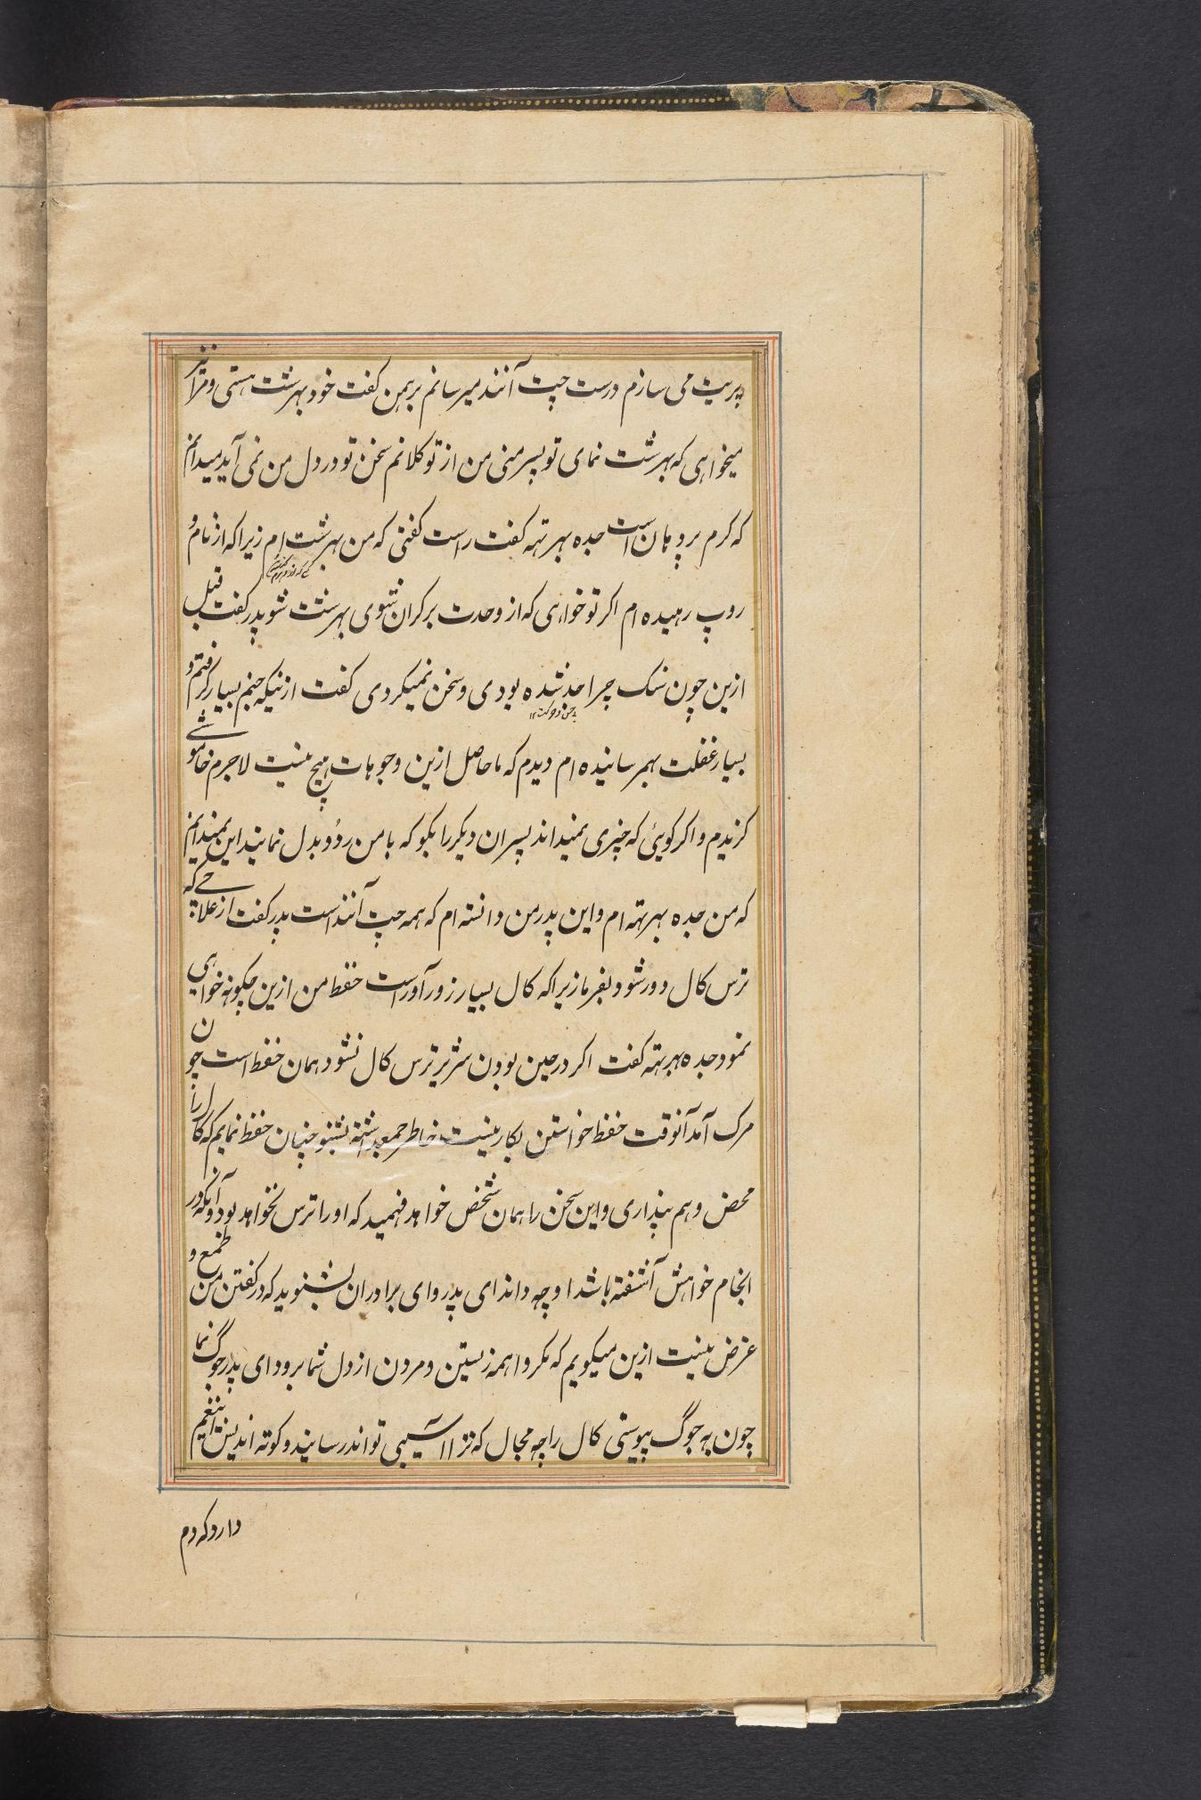 پریت می سازم درست چیت آنند میرسانم برهمن کفت خود بهرشت هستی و مرا نیز
میخواهی که بهرشت نمای تو پسر منی من از تو کلانم سخن تو در دل من نمی آید میدانم
که کرم بروپهان است جده بهرتهه کفت راست کفتی که من بهرشت ام زیراکه از نام و
روپ رهیده ام اکر تو خواهی که از وحدت برکران شوی بهرشت شو پدر کفت قبل
ازین چون سنک چرا جد شده بودی و سخن نمیکردی کفت ازنیکه جنم بسیار کرفتم و
بی حس و حرکت ۱۲
بسیار غفلت بهم رسانیده ام دیدم که ما حاصل ازین وجوهات هیچ نیست لاجرم خاموشی
کزیدم و اکر کویی که چیزی نمیداند پسران دیکر را بکو که با من رد و بدل نمایند این نمیدانم
که من جده بهرتهه ام و این پدر من دانسته ام که همه چت آنند است پدر کفت از علاجی که
ترس کال دور شود بفرما زیراکه کال بسیار زورآور است حفظ من ازین چکونه خواهی
نمود جده بهرتهه کفت اکر در حین بودن شریر ترس کال نشود همان حفظ است چون
مرک آمد آنوقت حفظ خواستن بکار نیست خاطر جمع داشته بشنو چنان حفظ نمایم که کال را
محض وهم پنداری و این سخن را همان شخص خواهد فهمید که او را ترس نخواهد بود و آنکه در
انجام خواهش آشفته باشد او چه داند ای پدر و ای برادران بشنوید که در کفتن من طمع و
غرض نیست ازین میکویم که مکر واهمه زیستن و مردن از دل شما برود ای پدر جوگ نما
چون به جوگ پیوستی کال را چه مجال که ترا آسیبی تواند رسانید و کوته اندیش این غم
دارد که دم